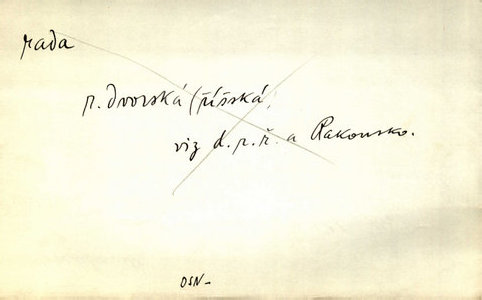 rada
r. dvorská (říšská,
viz d. r. ř. a Rakousko.
OSN-